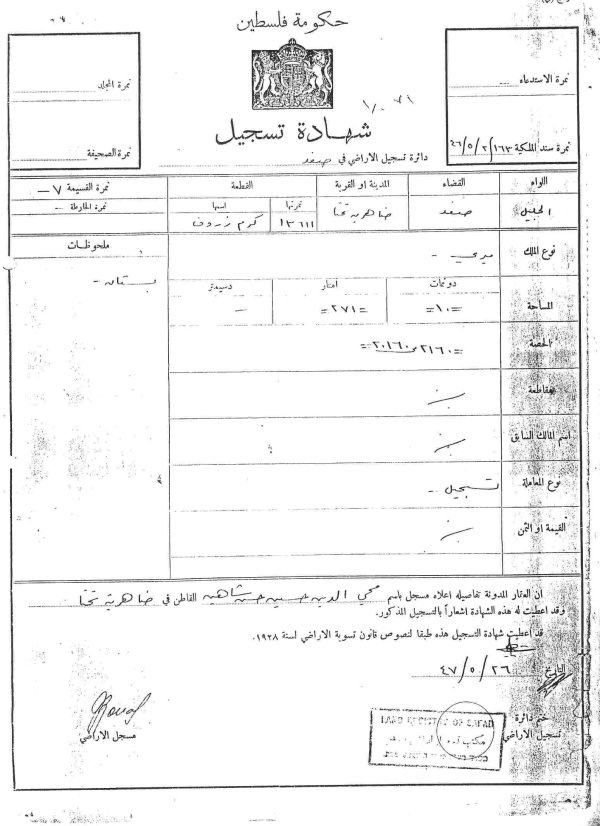 حكومة فلسطين
نمرة المجلد
نمرة الاستدعاء
١٠/٢٧١
شهادة تسجيل
نمرة الصحيفة
نمرة سند الملكية ١٦٣/٥/٤٦
دائرة تسجيل الاراضي في صفد
اللواء القضاء المدينة او القرية القطعة نمرة القسيمة ٧ –
نمرتها اسمها نمرة الخارطة –
الجليل صفد ضاهرية تحتا ١٣٦١١ كرم
ملحوظات
نوع الملك ميري –
بستان –
دونمات امتار دسيمتر
المساحة =١٠= =٢٧١= –
الحصة =٢١٦٠ من ٢٠١٦٠=
مقاطعة
اسم المالك السابق
نوع المعاملة تسجيل –
القيمة او الثمن
ان العقار المدونة تفاصيله اعلاه مسجل باسم محي الدين حسين حسن شاهين القاطن في ضاهرية تحتا
وقد اعطيت له هذه الشهادة اشعاراً بالتسجيل المذكور.
قد اعطيت شهادة التسجيل هذه طبقا لنصوص قانون تسوية الاراضي لسنة ١٩٢٨.
التاريخ ٢٦/٥/٤٧
ختم دائرة
تسجيل الاراضي
مسجل الاراضي